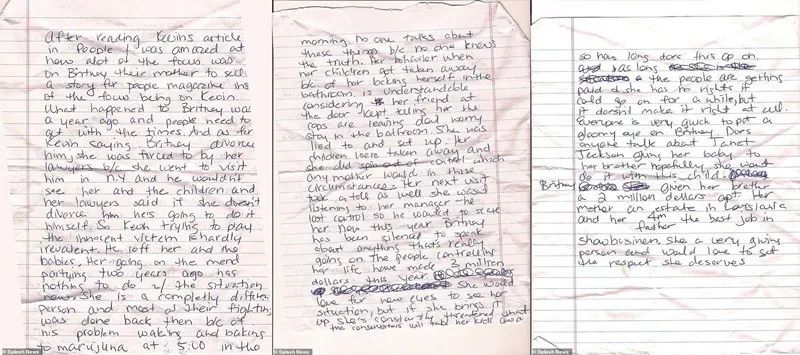 After reading Kevins article
in People I was amazed at
how alot of the focus was
on Britney their mother to sell
a story for people magazine ins
of the focus being on Kevin.
What happened to Britney was
a year ago and people need to
get with the times. And as for
Kevin saying Britney divorce
him, she was forced to by her
lawyers b/c she went to visit
him in N.Y and he wouldn't
see her and the children and
her lawyers said if she doesn't
divorce him he's going to do it
himself. So Kevin trying to play
the innocent victim is hardly
irrevalent. He left her and the
babies. Her going on the mend
partying two years ago has
nothing to do w/ the situation
now. She is a completly differen
person and most of their fighting
was done back then b/c of
his problem waking and baking
to marujuna at 5:00 in the
morning no one talks about
these things b/c no one knows
the truth. Her behavior when
her children got taken away
b/c of her locking herself in the
bathroom is understandable
considering her friend at
the door kept telling her the
cops are leaving dont worry
stay in the bathroom. She was
lied to and set up. Her
children were taken away and
she did control which
any mother would in those
circumstances. Her next visit
took a as well she was
listening to her manager - he
lot control so he would to
her. Now this year Britney
has been silenced to speak
about anything thats really
going on. The people controlling
her life have made 3 million
dollars this year
She would
love for new eyes to see her
situation, but if she brings it
up she's constantly threatened that
the conservators will take her kids awa
so how long does this go on
as long
the people are getting
paid & she has no rights it
could go on for a while, but
it doesnt make it right at all.
Everyone is very quick to put a
gloomy eye on Britney. Does
anyone talk about Janet
Jackson giving her baby to
her brother hopefully she wont
do it with this child.
Britney given her brother
a 2 million dollars apt. Her
mother an estate in Louisiana
and her 4m the best job in
father
Showbusiness. She a very giving
person and would love to get
the respect she deserves
© Splash News
© Splash News
© Splash News